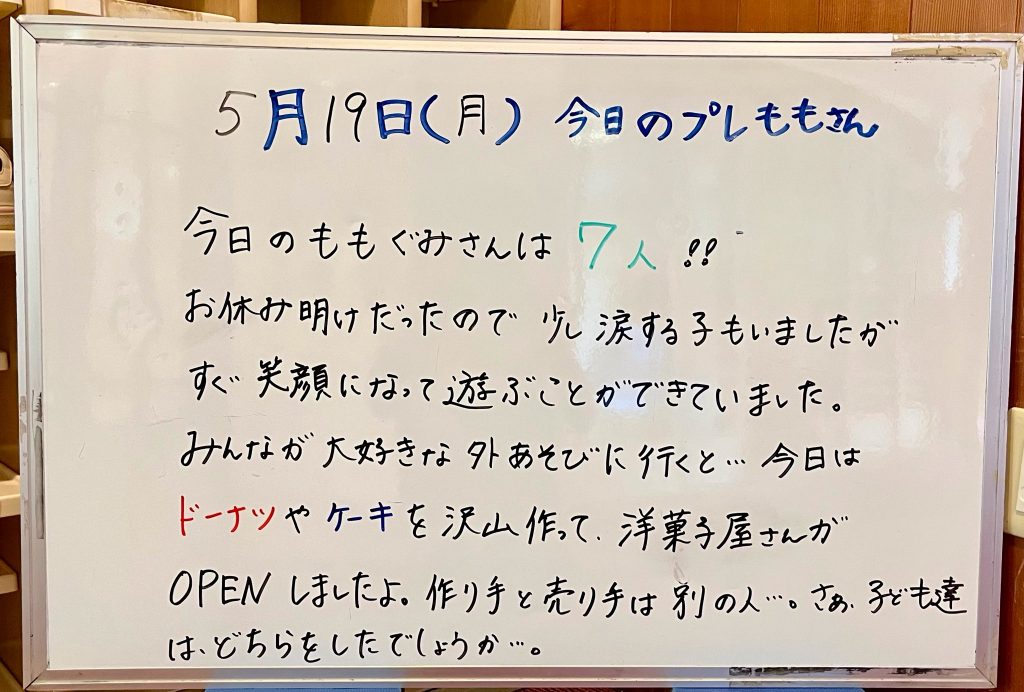 5月19日(月) 今日のプレももさん
今日のももぐみさんは 7人!!
お休み明けだったので 少し涙する子もいましたが
すぐ笑顔になって遊ぶことができていました。
みんなが大好きな外あそびに行くと… 今日は
ドーナツやケーキを沢山作って、洋菓子屋さんが
OPENしましたよ。作り手と売り手は別の人…。さぁ、子ども達
は、どちらをしたでしょうか…。